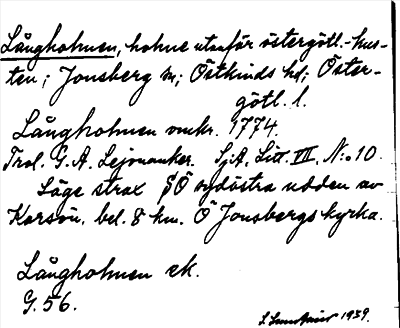 Långholmen, holme utanför östergötl.-kus-
ten; Jonsberg sn; Östkinds hd; Öster-
götl. l.
Långholmen omkr. 1774.
Trol. G. A. Lejonanker. SjA, Litt. VII, N:o 10.
Läge strax SÖ sydöstra udden av
Korsön, bel. 8 km. Ö Jonsbergs kyrka.
Långholmen ek.
G. 56.
1939.